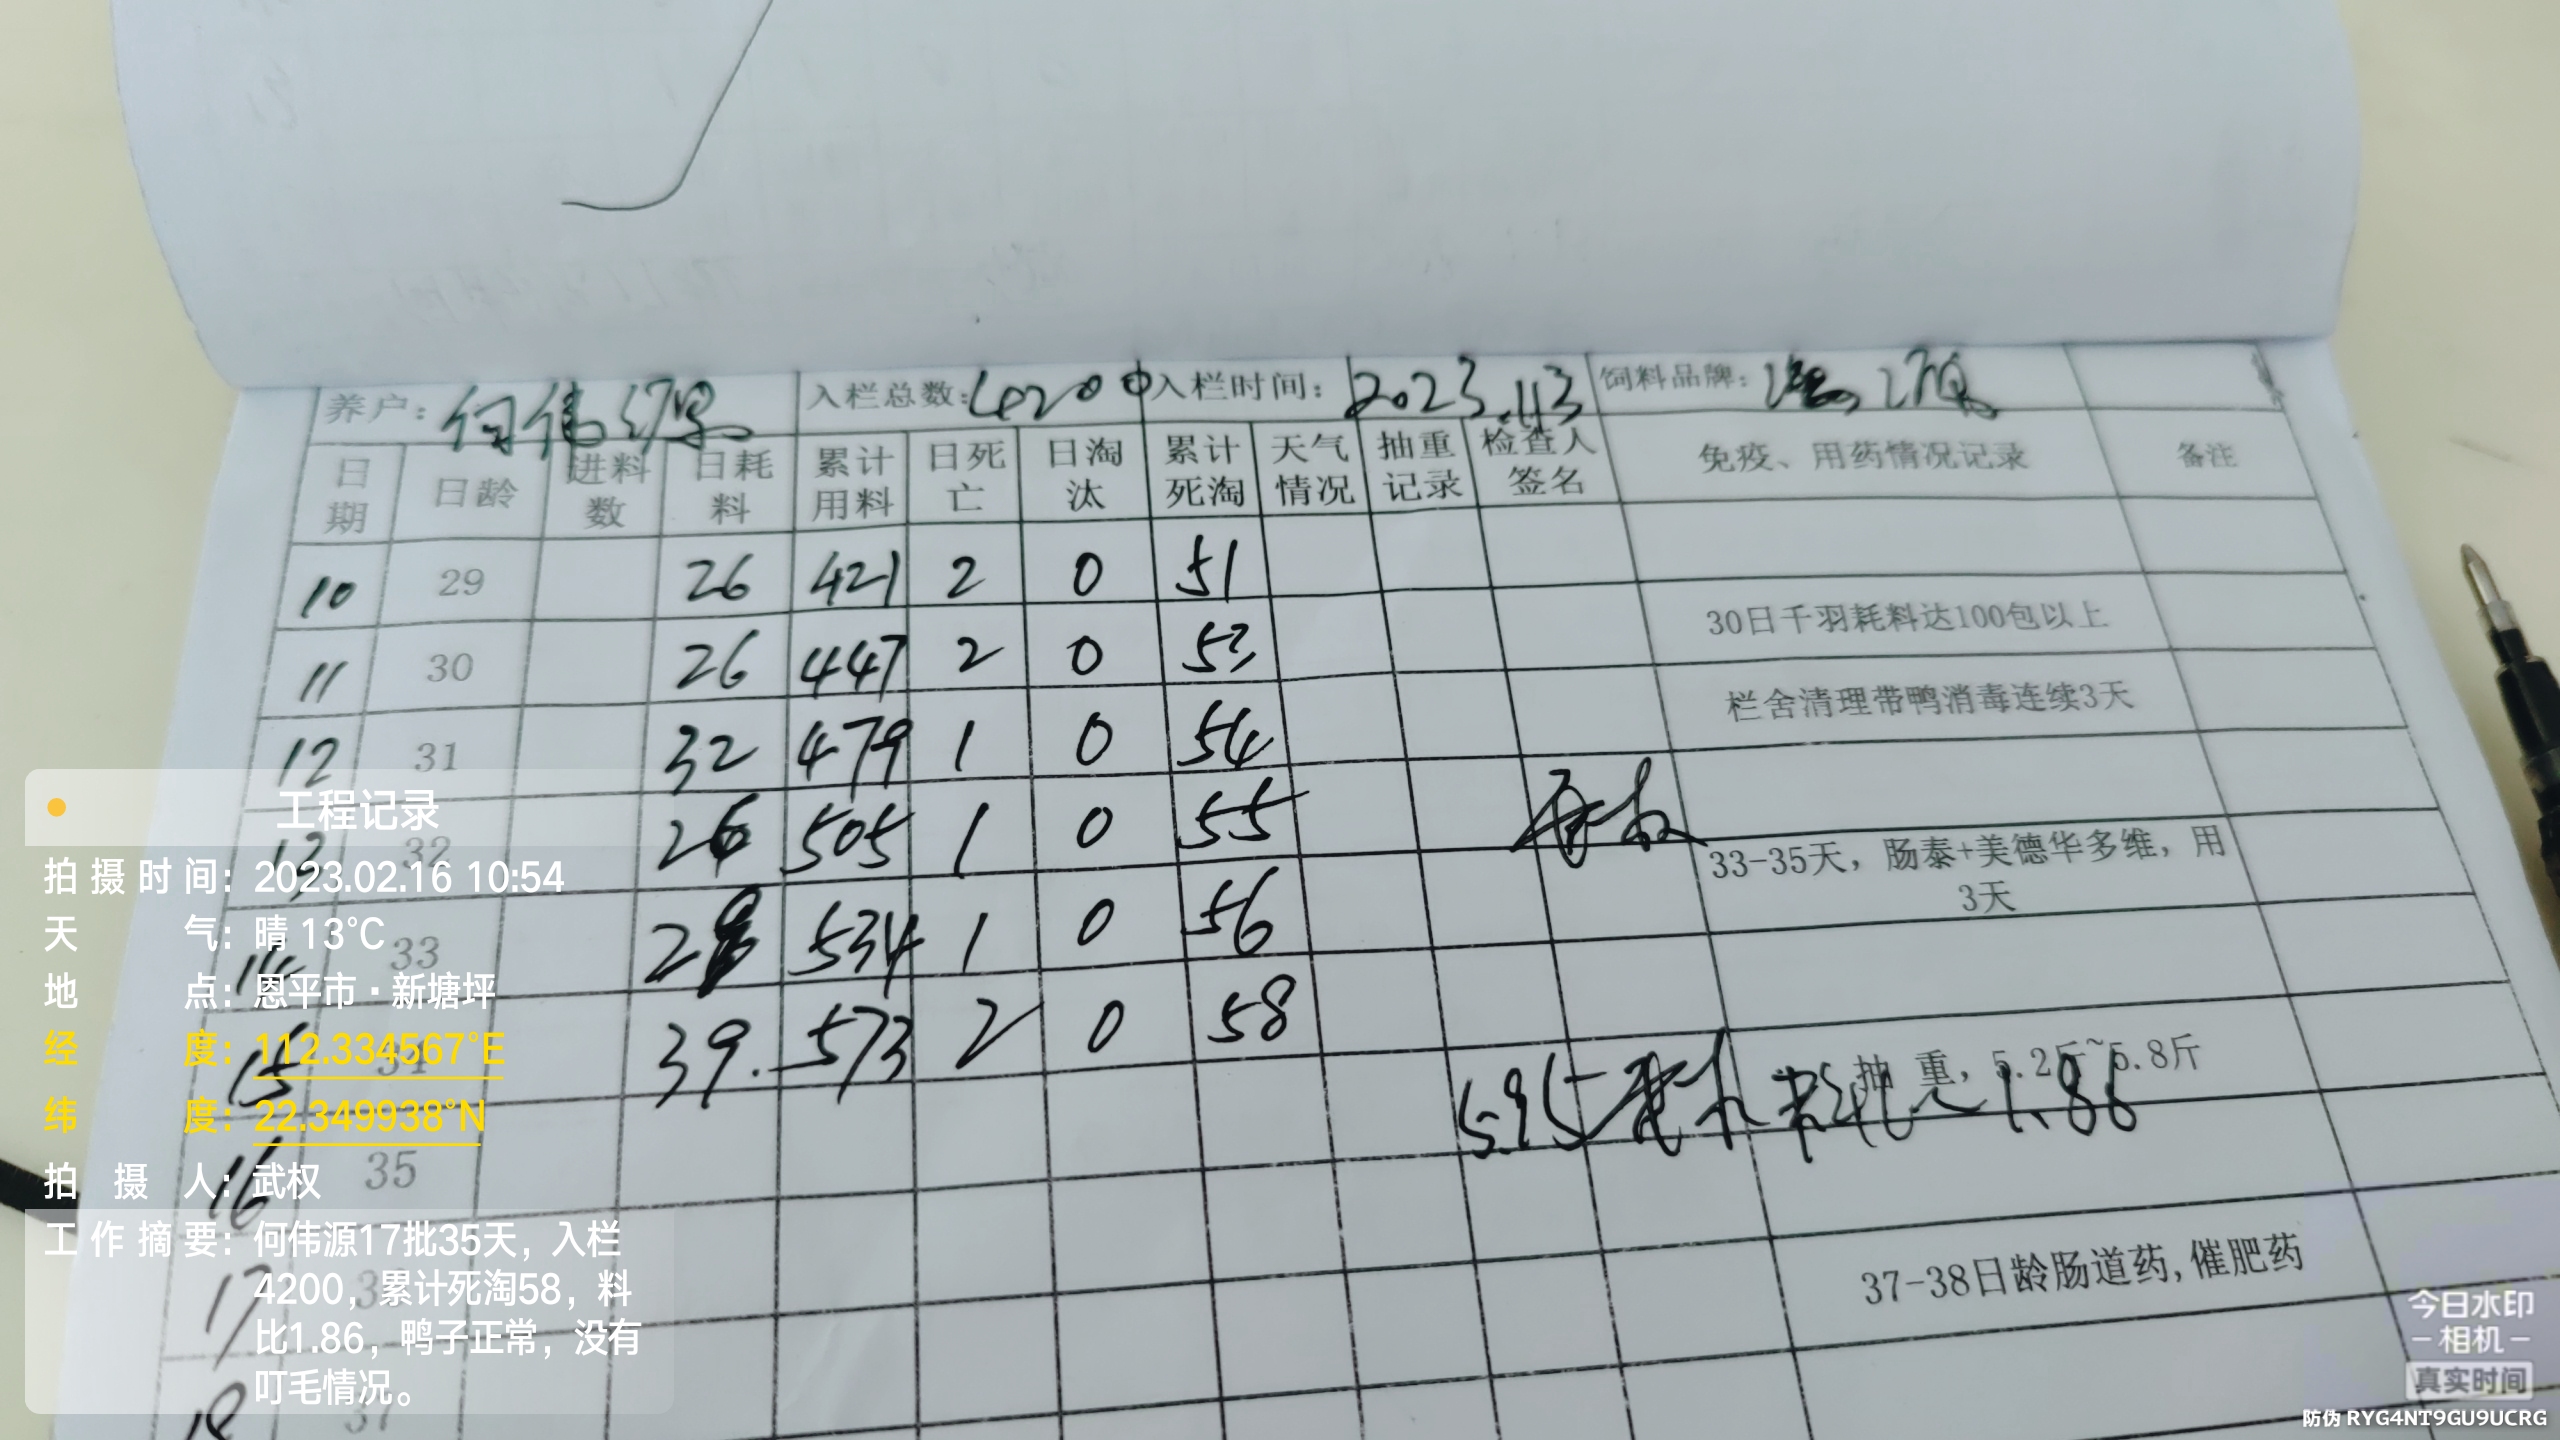 养户：何伟源 入栏总数：4200 入栏时间：2023.1.13 饲料品牌：
日期 日龄 进料数 日耗料 累计用料 日死亡 日淘汰 累计死淘 天气情况 抽重记录 检查人签名 免疫、用药情况记录 备注
10 29 26 421 2 0 51
11 30 26 447 2 0 53 30日千羽耗料达100包以上
12 31 32 479 1 0 54 栏舍清理带鸭消毒连续3天
13 32 26 505 1 0 55
14 33 534 1 0 56 33-35天，肠泰+美德华多维，用3天
15 34 39. 573 2 0 58
16 35 抽 重，5.2斤~5.8斤
5.95 料比 1.86
17 36
18 37 37-38日龄肠道药,催肥药
工程记录
拍摄时间：2023.02.16 10:54
天气：晴 13℃
地点：恩平市·新塘坪
经度：112.334567°E
纬度：22.349938°N
拍摄人：武权
工作摘要：何伟源17批35天，入栏
4200，累计死淘58，料
比1.86，鸭子正常，没有
叮毛情况。
今日水印
相机
真实时间
防伪 RYG4NT9GU9UCRG